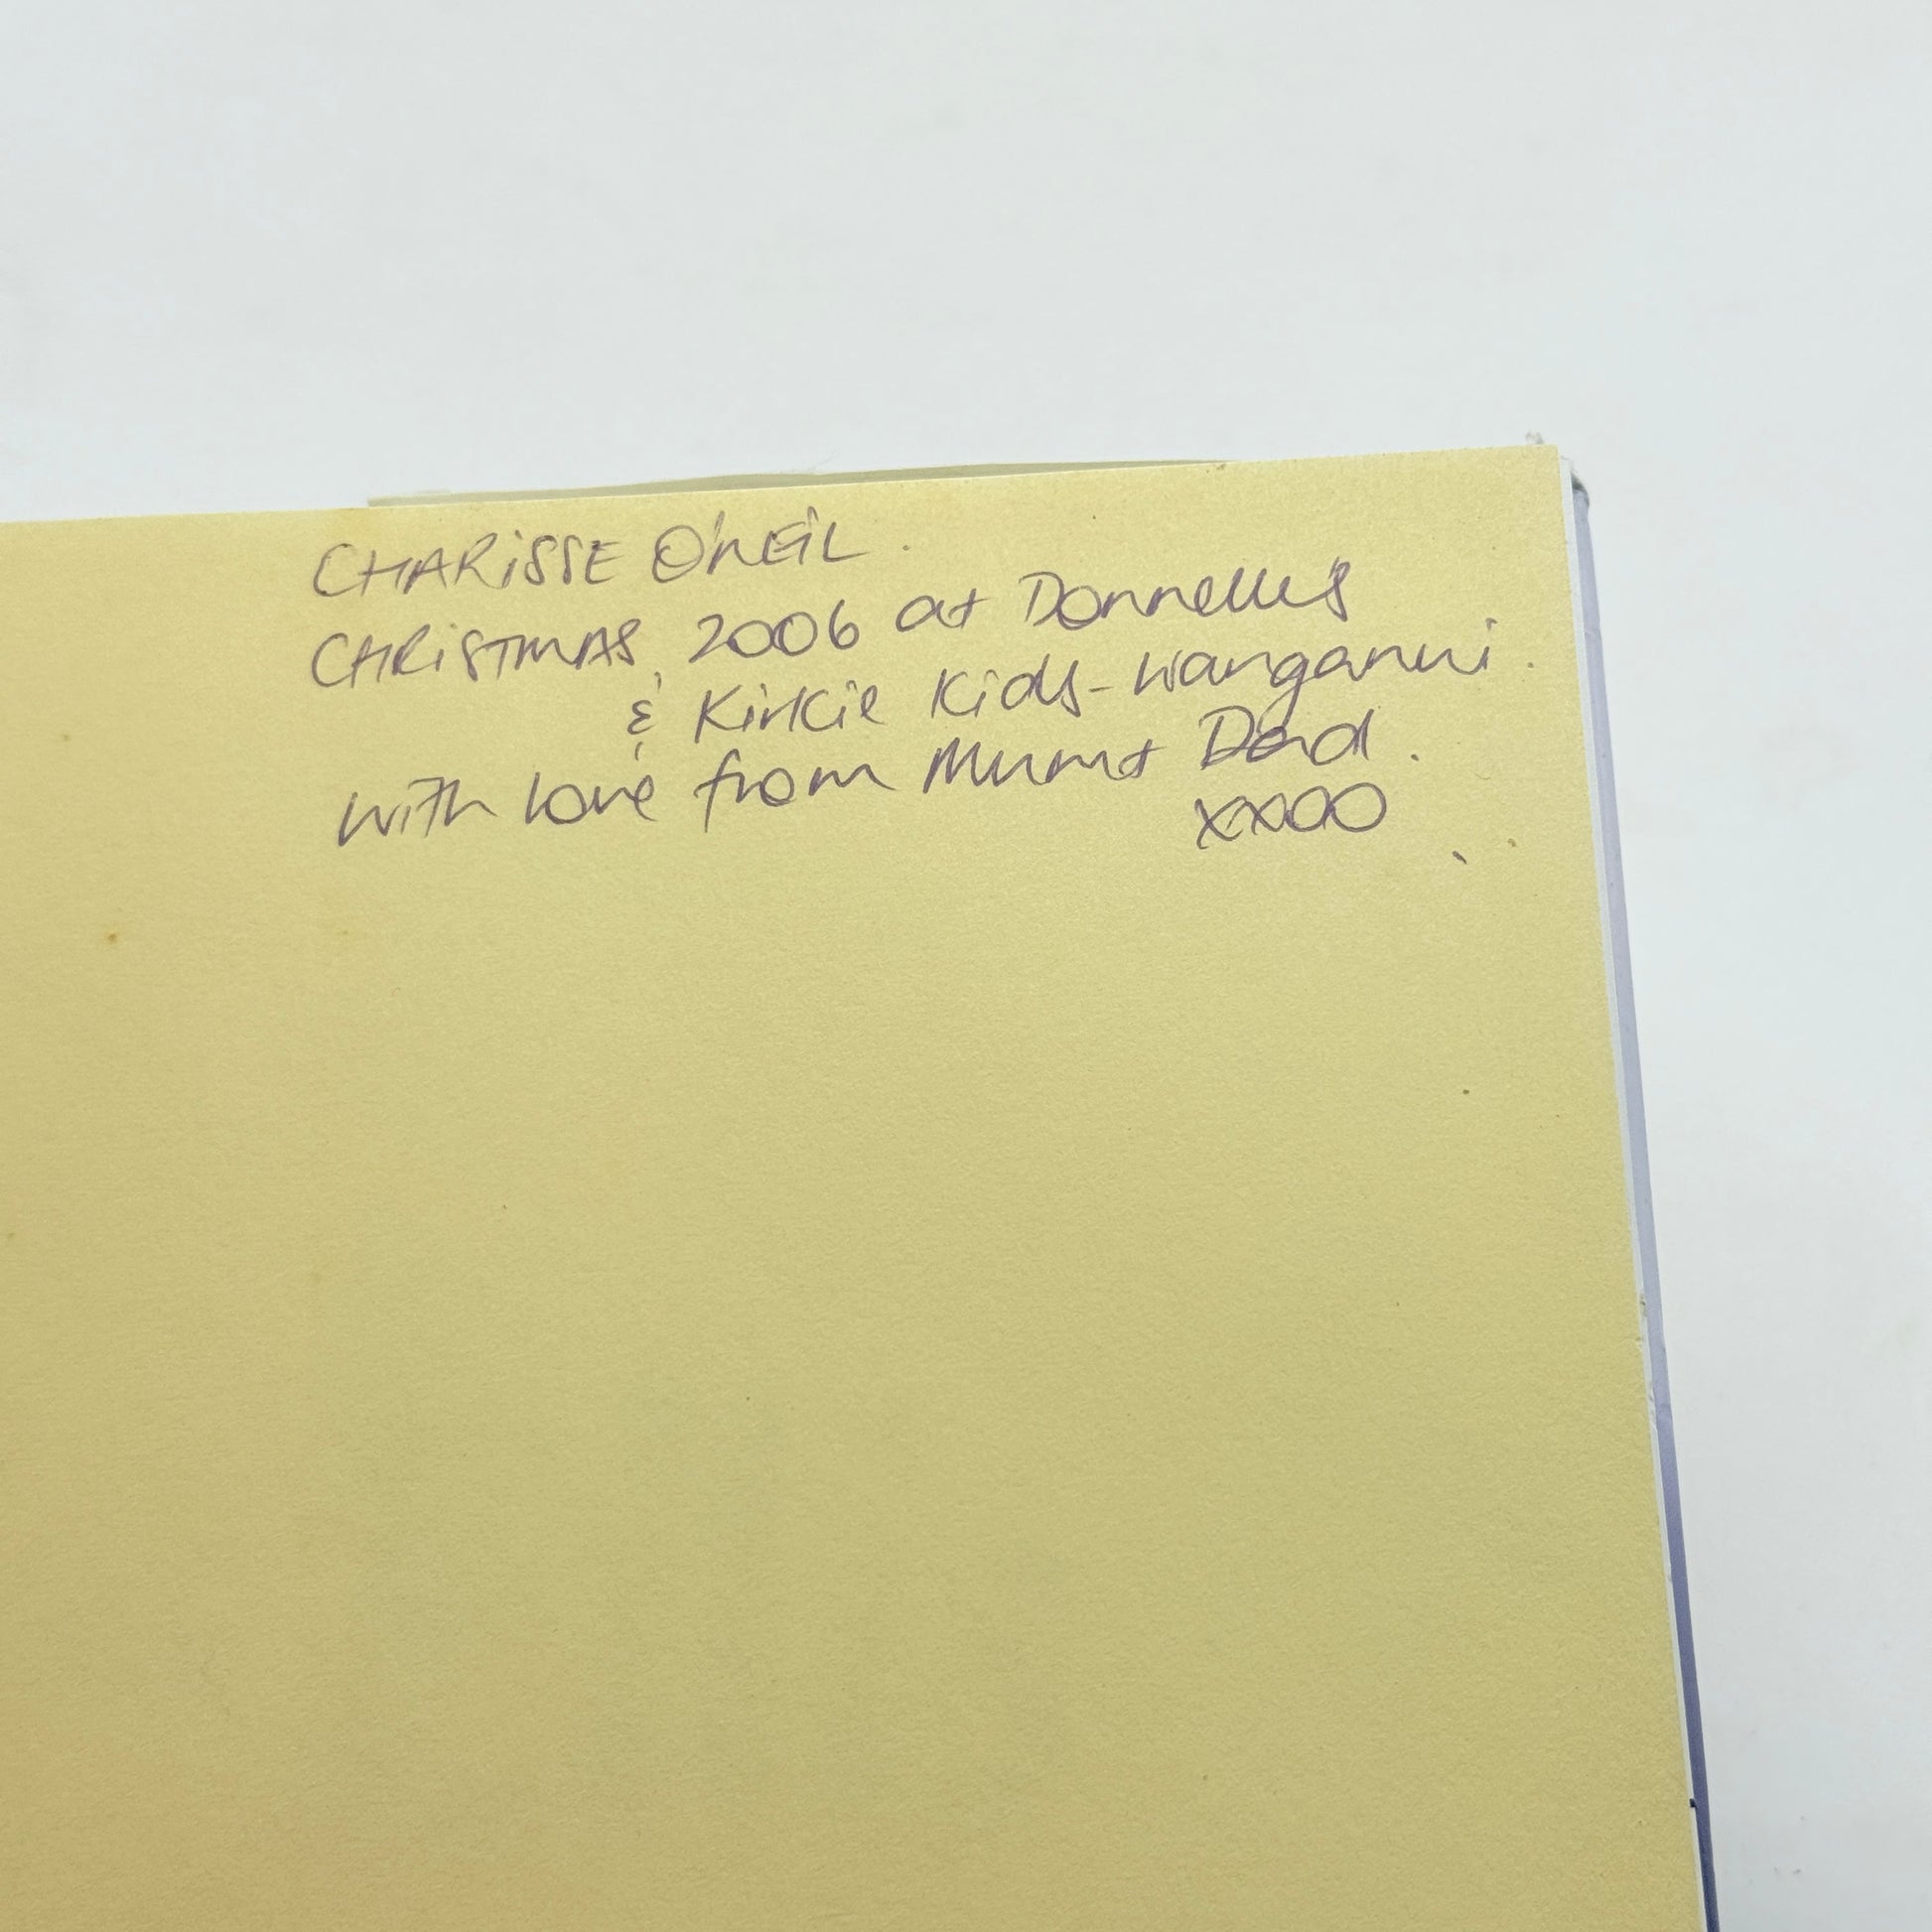 CHARiSSE O'NEiL.
CHRiSTMAS, 2006 at Donnelle's
& Kirkie Kids - Wanganui.
With love from Mum & Dad.
xxOO